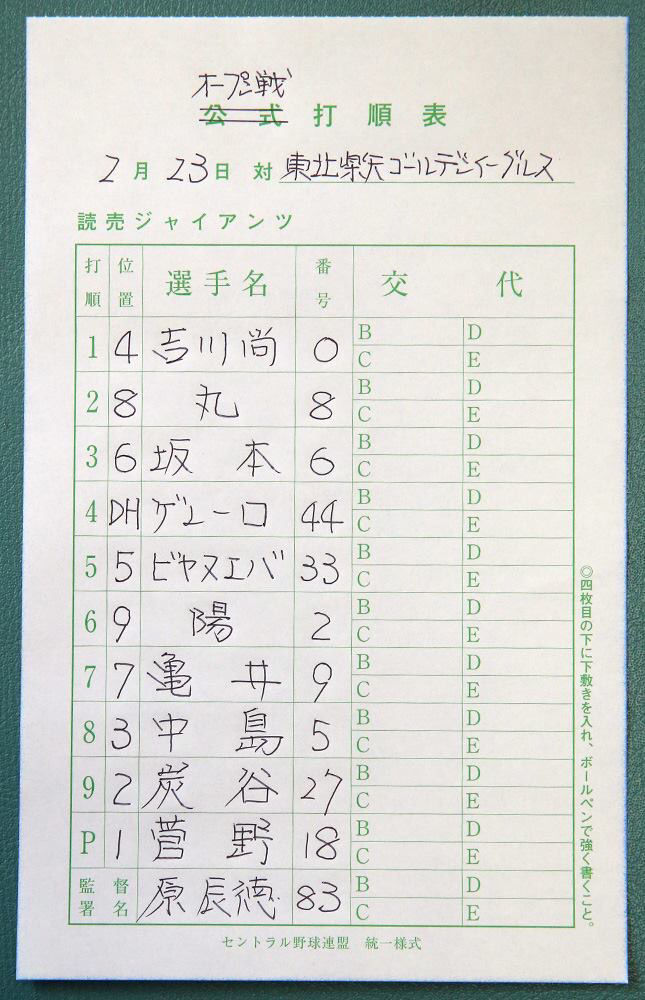 オープン戦
公式打順表
2月23日 対 東北楽天ゴールデンイーグルス
読売ジャイアンツ
打順 位置 選手名 番号 交代
1 4 吉川尚 0 B D
C E
2 8 丸 8 B D
C E
3 6 坂本 6 B D
C E
4 DH ゲレーロ 44 B D
C E
5 5 ビヤヌエバ 33 B D
C E
6 9 陽 2 B D
C E
7 7 亀井 9 B D
C E
8 3 中島 5 B D
C E
9 2 炭谷 27 B D
C E
P 1 菅野 18 B D
C E
監督署名 原辰徳 83 B D
C E
◎四枚目の下に下敷きを入れ、ボールペンで強く書くこと。
セントラル野球連盟 統一様式